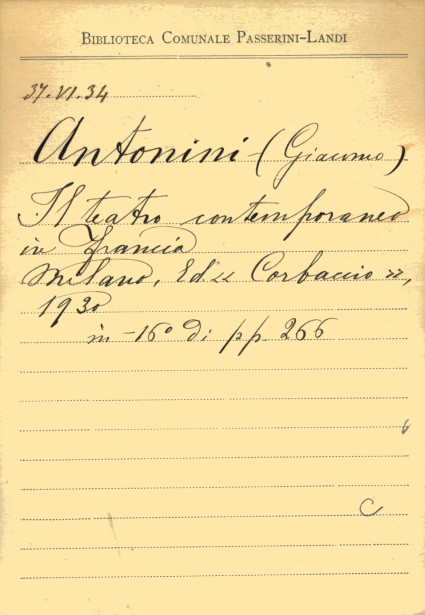 BIBLIOTECA COMUNALE PASSERINI-LANDI
37.VI.34
Antonini (Giacomo)
Il teatro contemporaneo
in Francia
Milano, Ed. « Corbaccio »,
1930
in -16° di pp. 266
C